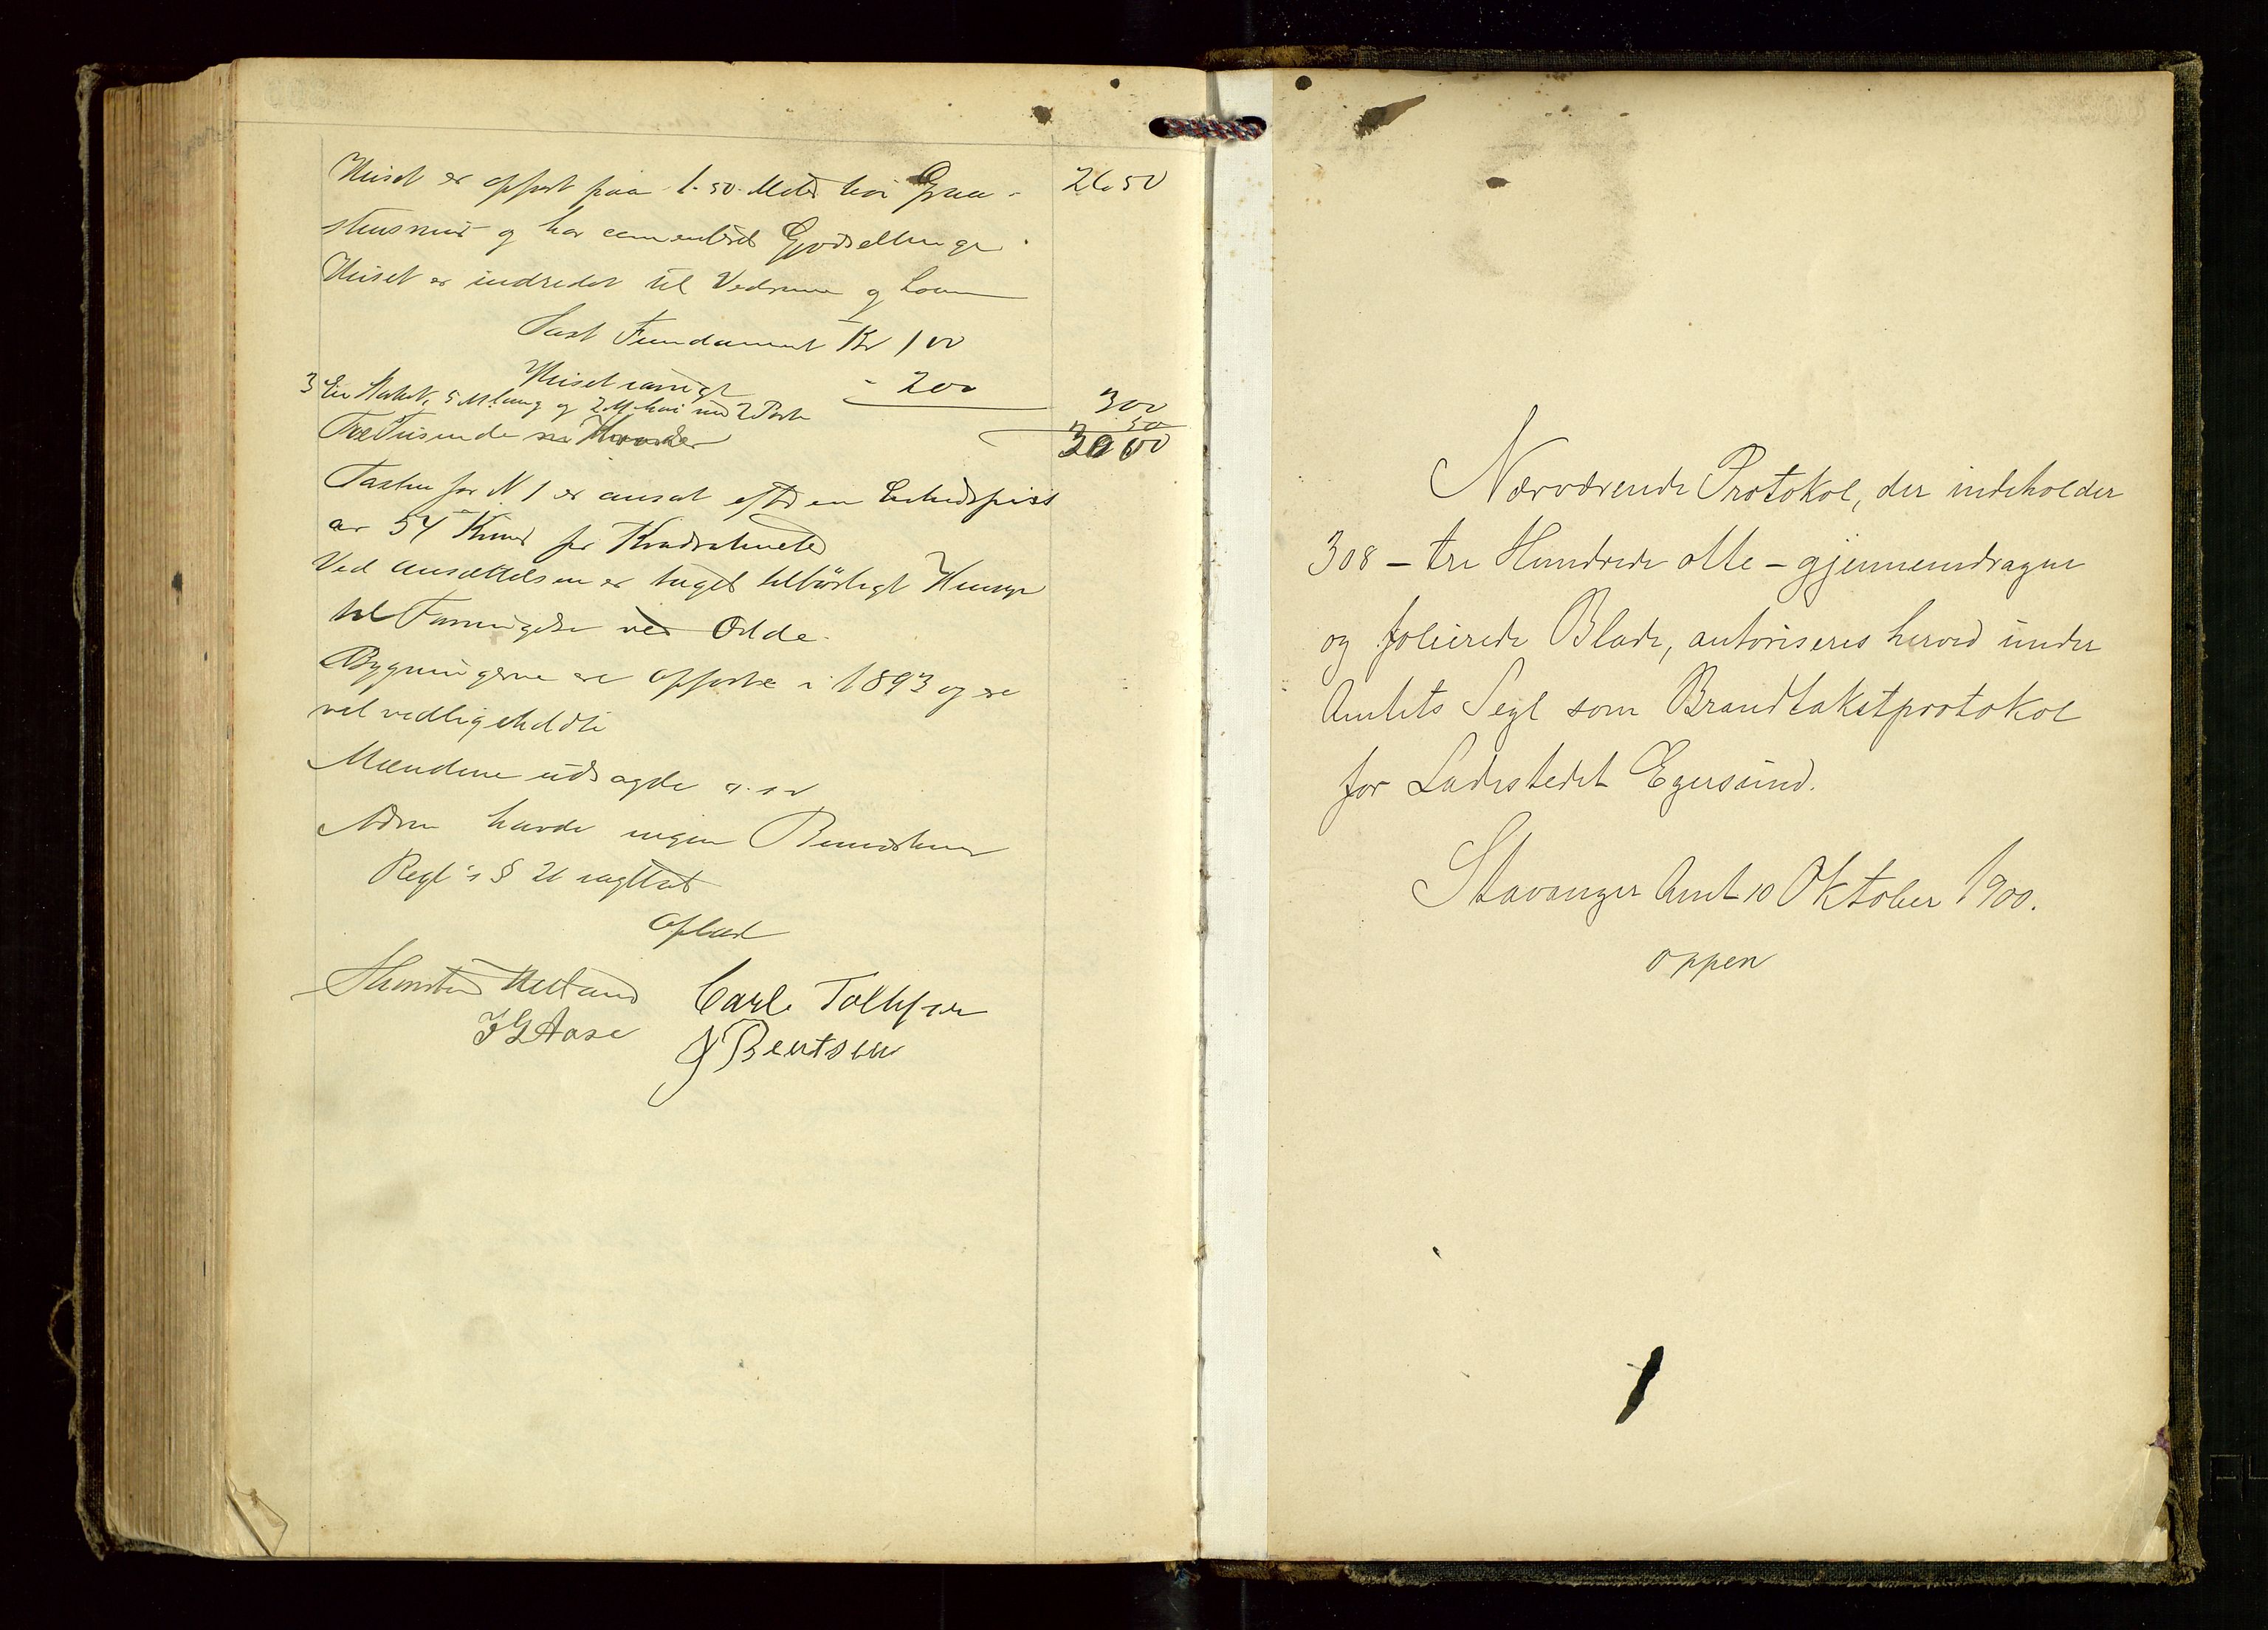 Huset er opført paa 1.50 Meter høi Graa- 2650
stensmur og har cementeret Gjødselbinge.
Huset er indredet til Vedrum og Loun
Taxt Fundament Kr 100
Huset iøvrigt - 200 300
3 En Stakit, 5 M lang og 2 M høi med 2 Porte 50
Tre Tusinde Kroner 3000
Taxten for N 1 er ansat efter en Enhedspris
av 54 Kroner per Kvadratmeter
Ved Ansættelsen er taget tilbørligt Hensyn
til Forringelse ved Ælde.
Bygningerne ere opførte i 1893 og ere
vel vedligeholdte
Mændene udsagde
havde ingen Bemerkning
Regl's § 21 iagttat
Oplæst
Hetland Carl Tollefsen
J G Aase J Bentsen
Nærværende Protokol, der indeholder
308 - tre Hundrede otte - gjennemdragne
og folierede Blade, autoriseres herved under
Amtets Segl som Brandtakstprotokol
for Ladestedet Egersund.
Stavanger Amt 10 Oktober 1900.
Oppen